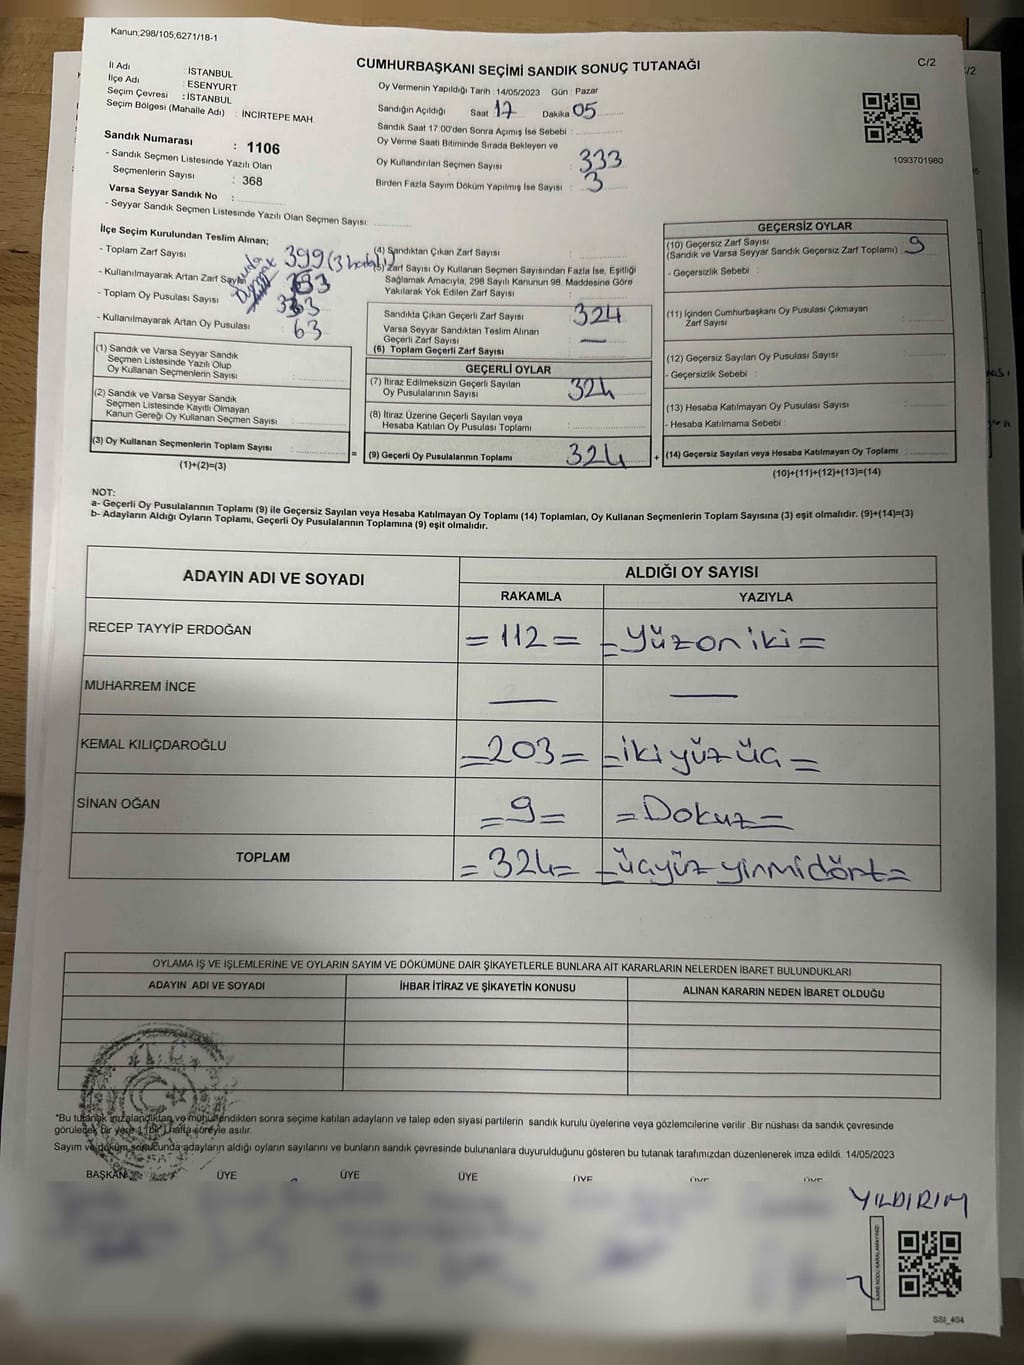 Kanun;298/105,6271/18-1
CUMHURBAŞKANI SEÇİMİ SANDIK SONUÇ TUTANAĞI
C/2
İl Adı : İSTANBUL
İlçe Adı : ESENYURT
Seçim Çevresi : İSTANBUL
Seçim Bölgesi (Mahalle Adı) : İNCİRTEPE MAH.
Sandık Numarası : 1106
- Sandık Seçmen Listesinde Yazılı Olan
Seçmenlerin Sayısı : 368
Varsa Seyyar Sandık No :
- Seyyar Sandık Seçmen Listesinde Yazılı Olan Seçmen Sayısı:
Oy Vermenin Yapıldığı Tarih : 14/05/2023 Gün : Pazar
Sandığın Açıldığı Saat 17 Dakika 05
Sandık Saat 17:00'den Sonra Açımış İse Sebebi :
Oy Verme Saati Bitiminde Sırada Bekleyen ve
Oy Kullandırılan Seçmen Sayısı : 333
Birden Fazla Sayım Döküm Yapılmış İse Sayısı : 3
1093701980
İlçe Seçim Kurulundan Teslim Alınan;
- Toplam Zarf Sayısı 399 (3 hatalı)
- Kullanılmayarak Artan Zarf Sayısı
- Toplam Oy Pusulası Sayısı
- Kullanılmayarak Artan Oy Pusulası 63
(1) Sandık ve Varsa Seyyar Sandık
Seçmen Listesinde Yazılı Olup
Oy Kullanan Seçmenlerin Sayısı :
(2) Sandık ve Varsa Seyyar Sandık
Seçmen Listesinde Kayıtlı Olmayan
Kanun Gereği Oy Kullanan Seçmen Sayısı :
(3) Oy Kullanan Seçmenlerin Toplam Sayısı :
(1)+(2)=(3)
(4) Sandıktan Çıkan Zarf Sayısı :
(5) Zarf Sayısı Oy Kullanan Seçmen Sayısından Fazla İse, Eşitliği
Sağlamak Amacıyla, 298 Sayılı Kanunun 98. Maddesine Göre
Yakılarak Yok Edilen Zarf Sayısı :
Sandıkta Çıkan Geçerli Zarf Sayısı : 324
Varsa Seyyar Sandıktan Teslim Alınan
Geçerli Zarf Sayısı : —
(6) Toplam Geçerli Zarf Sayısı :
GEÇERLİ OYLAR
(7) İtiraz Edilmeksizin Geçerli Sayılan
Oy Pusulalarının Sayısı : 324
(8) İtiraz Üzerine Geçerli Sayılan veya
Hesaba Katılan Oy Pusulası Toplamı :
= (9) Geçerli Oy Pusulalarının Toplamı : 324 +
GEÇERSİZ OYLAR
(10) Geçersiz Zarf Sayısı
(Sandık ve Varsa Seyyar Sandık Geçersiz Zarf Toplamı) : 9
- Geçersizlik Sebebi :
(11) İçinden Cumhurbaşkanı Oy Pusulası Çıkmayan
Zarf Sayısı :
(12) Geçersiz Sayılan Oy Pusulası Sayısı :
- Geçersizlik Sebebi :
(13) Hesaba Katılmayan Oy Pusulası Sayısı :
- Hesaba Katılmama Sebebi :
(14) Geçersiz Sayılan veya Hesaba Katılmayan Oy Toplamı :
(10)+(11)+(12)+(13)=(14)
NOT:
a- Geçerli Oy Pusulalarının Toplamı (9) ile Geçersiz Sayılan veya Hesaba Katılmayan Oy Toplamı (14) Toplamları, Oy Kullanan Seçmenlerin Toplam Sayısına (3) eşit olmalıdır. (9)+(14)=(3)
b- Adayların Aldığı Oyların Toplamı, Geçerli Oy Pusulalarının Toplamına (9) eşit olmalıdır.
ADAYIN ADI VE SOYADI ALDIĞI OY SAYISI
RAKAMLA YAZIYLA
RECEP TAYYİP ERDOĞAN = 112 = = Yüzon iki =
MUHARREM İNCE — —
KEMAL KILIÇDAROĞLU = 203 = = iki yüz üç =
SİNAN OĞAN = 9 = = Dokuz =
TOPLAM = 324 = = üçyüz yirmidört =
OYLAMA İŞ VE İŞLEMLERİNE VE OYLARIN SAYIM VE DÖKÜMÜNE DAİR ŞİKAYETLERLE BUNLARA AİT KARARLARIN NELERDEN İBARET BULUNDUKLARI
ADAYIN ADI VE SOYADI İHBAR İTİRAZ VE ŞİKAYETİN KONUSU ALINAN KARARIN NEDEN İBARET OLDUĞU
*Bu tutanak imzalandıktan ve mühürlendikten sonra seçime katılan adayların ve talep eden siyasi partilerin sandık kurulu üyelerine veya gözlemcilerine verilir .Bir nüshası da sandık çevresinde
görülecek bir yere 1 (bir) hafta süreyle asılır.
Sayım ve döküm sonucunda adayların aldığı oyların sayılarını ve bunların sandık çevresinde bulunanlara duyurulduğunu gösteren bu tutanak tarafımızdan düzenlenerek imza edildi. 14/05/2023
BAŞKAN ÜYE ÜYE ÜYE ÜYE ÜYE ÜYE
YILDIRIM
SSI_404